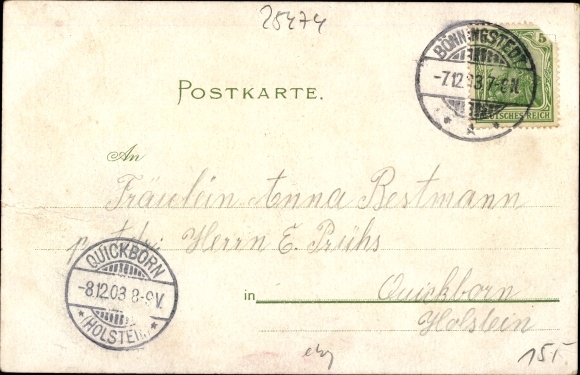 25474
BÖNNINGSTEDT
-7.12.03. 7-8N.
5
DEUTSCHES REICH
POSTKARTE.
An
Fräulein Anna Bestmann
Herrn E. Prühs
QUICKBORN
-8.12.03 8-9V.
(HOLSTEIN)
in Quickborn
Holstein